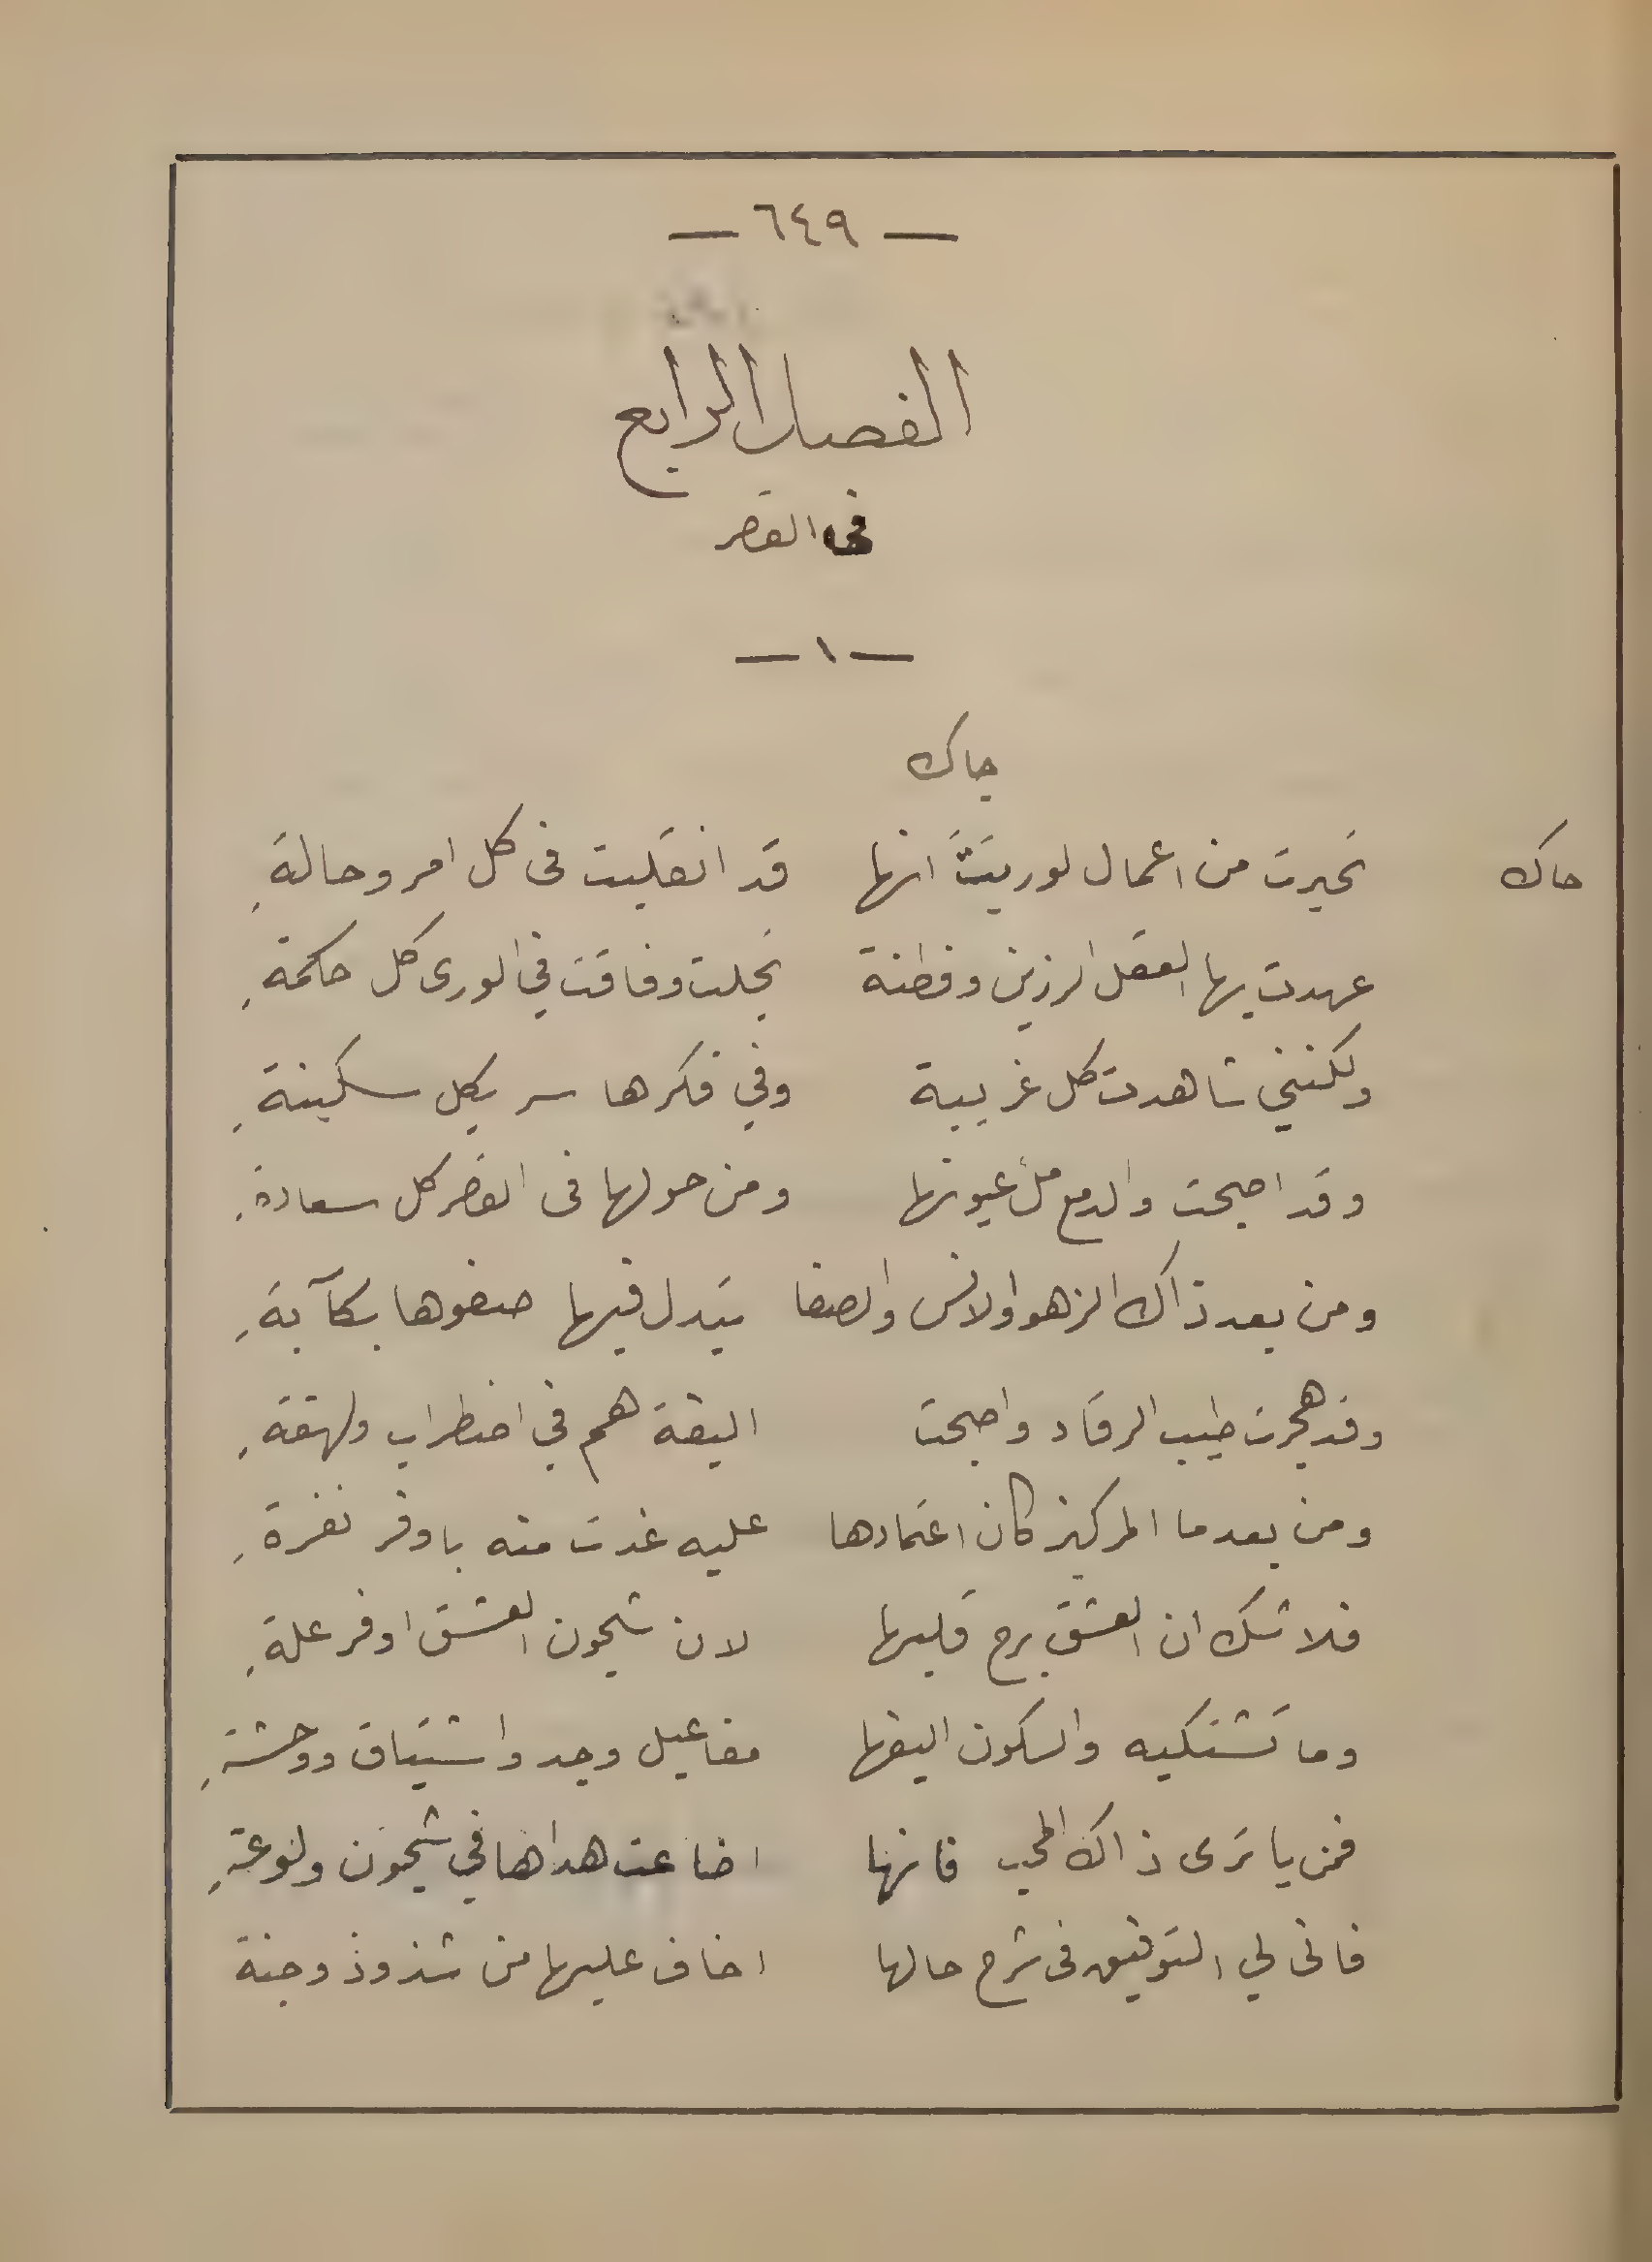 — ٦٤٩ —
الفصل الرابع
في القصر
— ١ —
جاك
جاك تحيرت من اعمال لوريتَّ انها قد انقلبت في كل امر وحالةِ
عهدت بها العقل الرزين وفطنة تجلت وفاقت في الورى كل حكمةِ
ولكنني شاهدت كل غريبة وفي فكرها سر بكل سكينةِ
وقد اصبحت والدمع ملْ عيونها ومن حولها في القصر كل سعادةِ
ومن بعد ذاك الزهو اولانس والصفا تبدل فيها صفوها بكآبةِ
وقد هجرت طيب الرقاد واصبحت اليفة هم في اضطراب ولهفةِ
ومن بعد ما المركيز كان اعتمادها عليه غدت منه باوفر نفرةِ
فلا شك ان العشق برح قلبها لان شجون العشق اوفر علةِ
وما تشتكيه والسكون اليفها مفاعيل وجد واشتياق ووحشةِ
فمن يا ترى ذاك المحب فانها اضاعت هداها في شجون ولوعةِ
فانى لي التوفيق في شرح حالها اخاف عليها من شذوذ وجنة